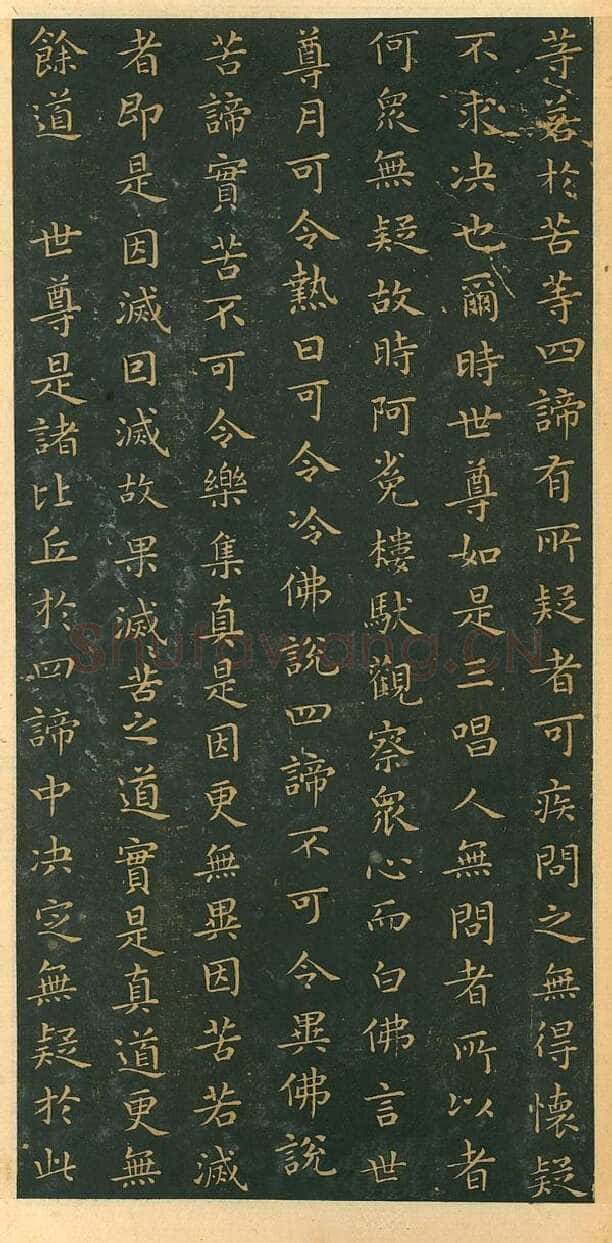 等若於苦等四諦有所疑者可疾問之無得懷疑
不求决也爾時世尊如是三唱人無問者所以者
何眾無疑故時阿㝹樓馱觀察眾心而白佛言世
尊月可令熱日可令冷佛說四諦不可令異佛說
苦諦實苦不可令樂集真是因更無異因苦若滅
者即是因滅因滅故果滅滅苦之道實是真道更無
餘道 世尊是諸比丘於四諦中决定無疑於此
Shufawang.CN